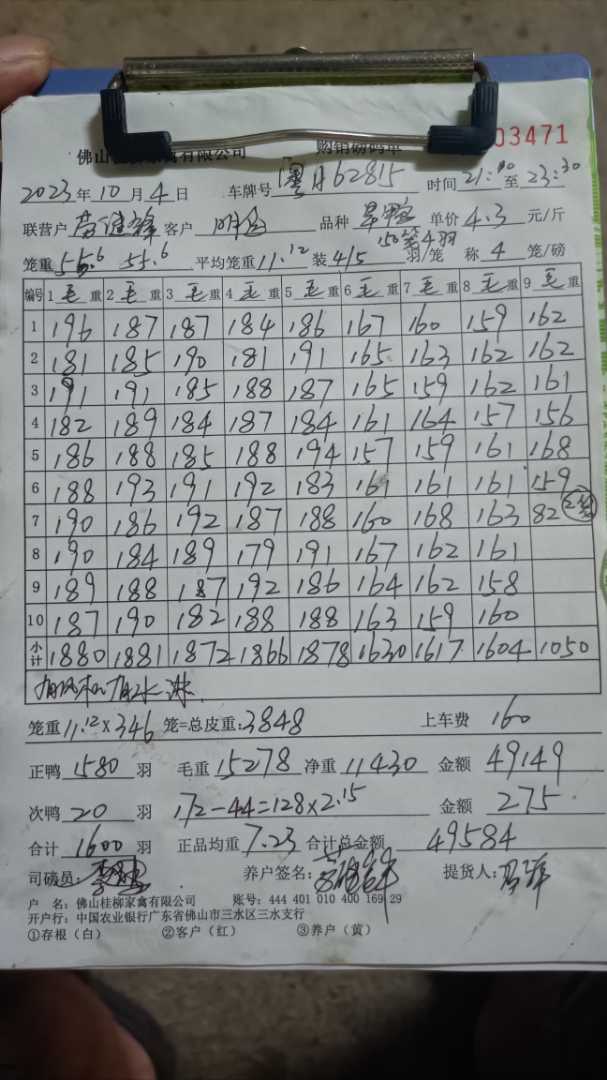 佛山桂柳家禽有限公司 购销磅码单 03471
2023年10月4日 车牌号 粤 62815 时间21:00至23:30
联营户 客户 品种 单价4.3元/斤
笼重 55.6 55.6 平均笼重11.12 装4/5羽/笼 称4笼/磅
编号 1毛重 2毛重 3毛重 4毛重 5毛重 6毛重 7毛重 8毛重 9毛重
1 196 187 187 184 186 167 160 159 162
2 181 185 190 181 191 165 163 162 162
3 191 191 185 188 187 165 159 162 161
4 182 189 184 187 184 161 164 157 156
5 186 188 185 188 194 157 159 161 168
6 188 193 191 192 183 161 161 161 159
7 190 186 192 187 188 160 168 163 82
8 190 184 189 179 191 167 162 161
9 189 188 187 192 186 164 162 158
10 187 190 182 188 188 163 159 160
小计 1880 1881 1872 1866 1878 1630 1617 1604 1050
笼重11.12×346笼=总皮重:3848 上车费 160
正鸭1580羽 毛重15278 净重11430 金额49149
次鸭20羽 172-44=128×2.15 金额275
合计1600羽 正品均重7.23 合计总金额49584
司磅员: 养户签名: 提货人:
户 名:佛山桂柳家禽有限公司 账号:444 401 010 400 169 29
开户行:中国农业银行广东省佛山市三水区三水支行
①存根(白) ②客户(红) ③养户(黄)